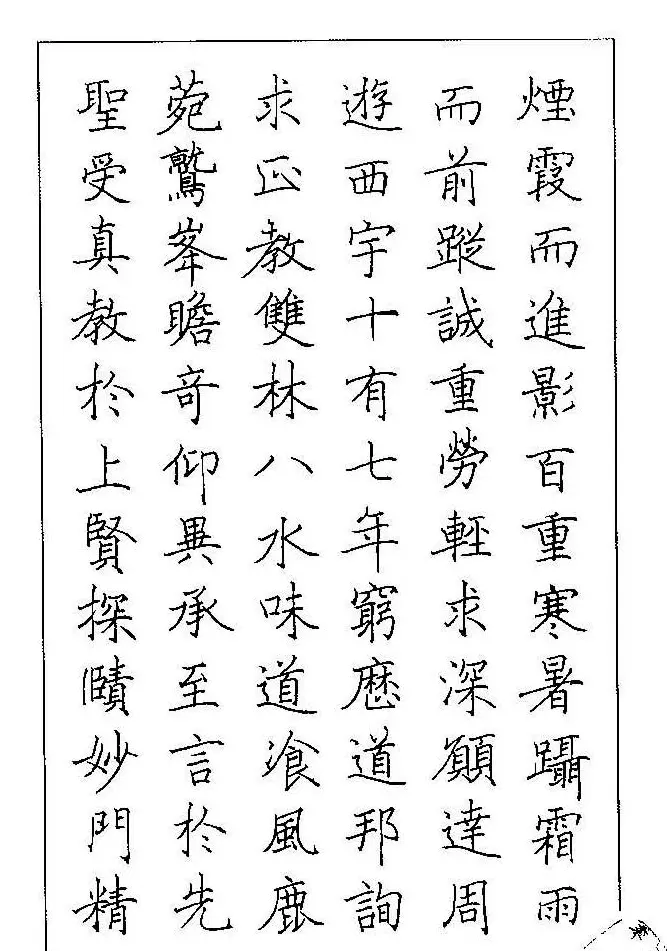 煙霞而進影百重寒暑躡霜雨
而前蹤誠重勞輕求深願達周
遊西宇十有七年窮歷道邦詢
求正教雙林八水味道飡風鹿
菀鷲峯瞻奇仰異承至言於先
聖受真教於上賢探賾妙門精